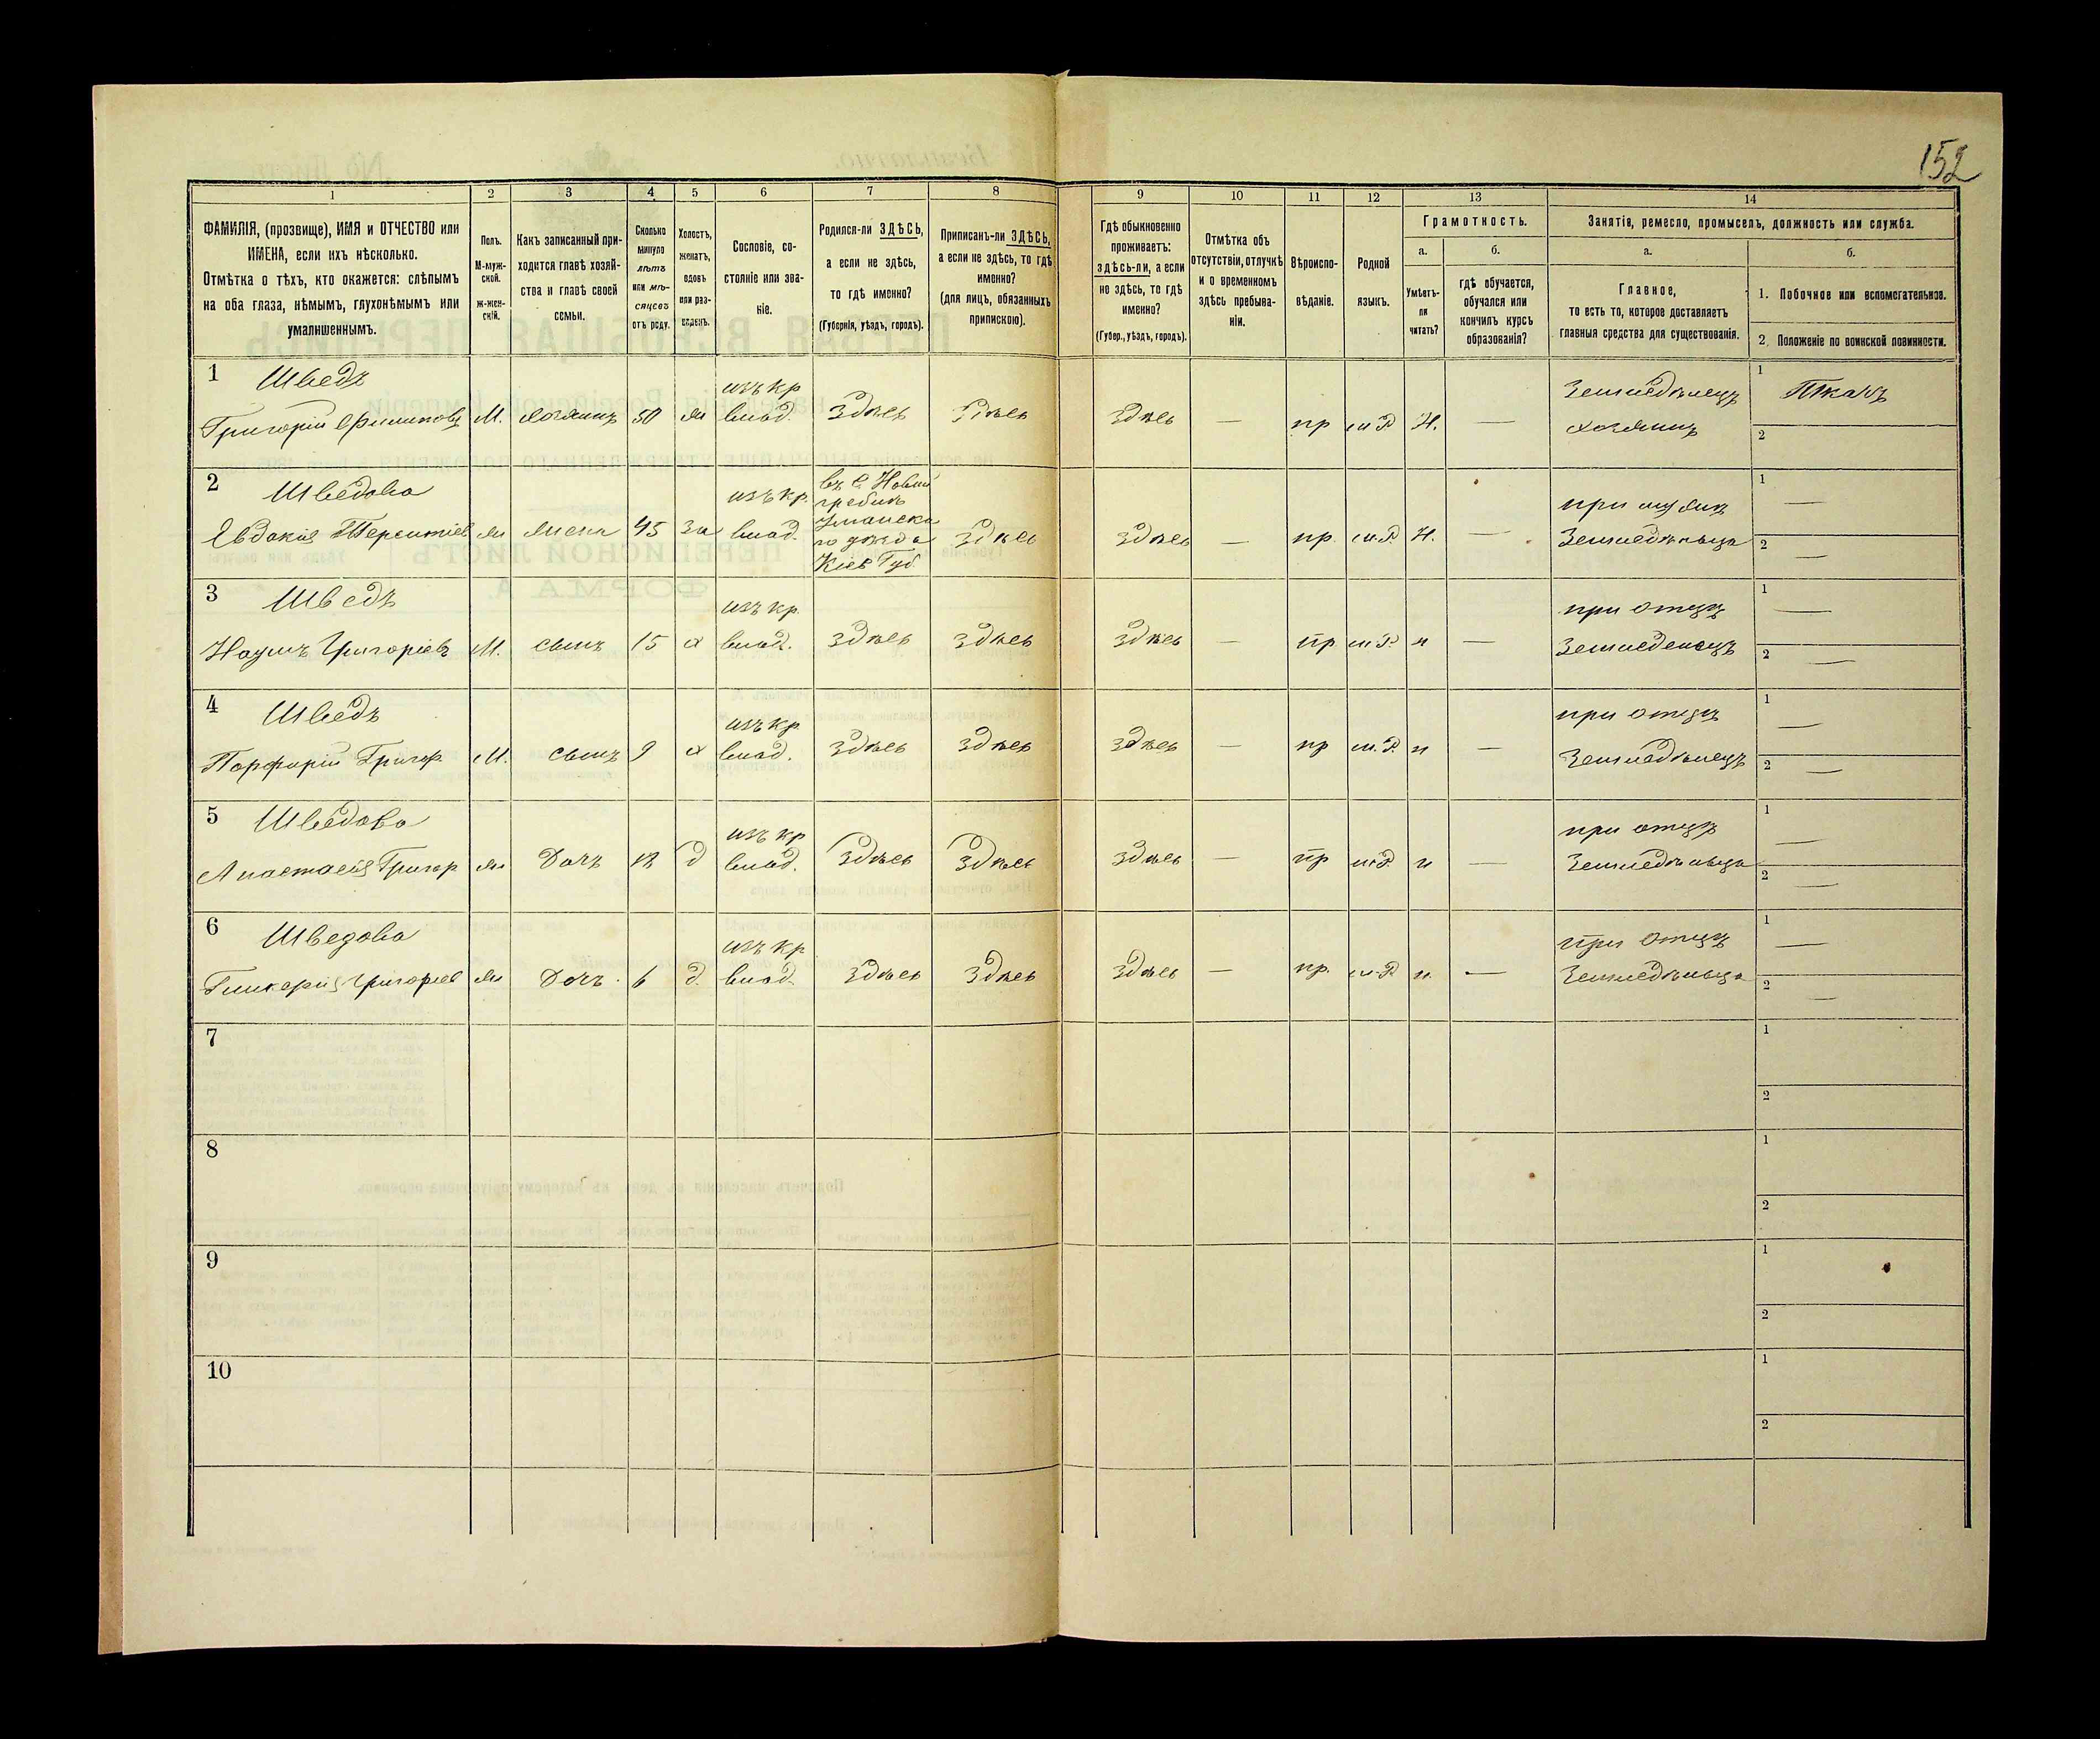 152
1 2 3 4 5 6 7 8 9 10 11 12 13 14
ФАМИЛІЯ, (прозвище), ИМЯ и ОТЧЕСТВО или
ИМЕНА, если ихъ нѣсколько.
Отмѣтка о тѣхъ, кто окажется: слѣпымъ
на оба глаза, нѣмымъ, глухонѣмымъ или
умалишеннымъ.
Полъ.
М-муж-
ской.
Ж-жен-
скій.
Какъ записанный при-
ходится главѣ хозяй-
ства и главѣ своей
семьи.
Сколько
минуло
лѣтъ
или мѣ-
сяцевъ
отъ роду.
Холостъ,
женатъ,
вдовъ
или раз-
веденъ.
Сословіе, со-
стояніе или зва-
ніе.
Родился-ли ЗДѢСЬ,
а если не здѣсь,
то гдѣ именно?
(Губернія, уѣздъ, городъ).
Приписанъ-ли ЗДѢСЬ,
а если не здѣсь, то гдѣ
именно?
(для лицъ, обязанныхъ
припискою).
Гдѣ обыкновенно
проживаетъ:
здѣсь-ли, а если
не здѣсь, то гдѣ
именно?
(Губер., уѣздъ, городъ).
Отмѣтка объ
отсутствіи, отлучкѣ
и о временномъ
здѣсь пребыва-
ніи.
Вѣроиспо-
вѣданіе.
Родной
языкъ.
Грамотность.
а.
Умѣетъ-
ли
читать?
б.
гдѣ обучается,
обучался или
кончилъ курсъ
образованія?
Занятія, ремесло, промыселъ, должность или служба.
а.
Главное,
то есть то, которое доставляетъ
главныя средства для существованія.
б.
1. Побочное или вспомогательное.
2. Положеніе по воинской повинности.
1 Шведъ изъ кр Земледѣлецъ 1 Ткачъ
Григорій Филиповъ М. хозяинъ 50 ж влад. Здѣсь Здѣсь Здѣсь — пр м Р Н. — хозяинъ 2
2 Шведова изъ кр. въ С. Новый при мужѣ 1 —
гребинь
Уманска
Евдокія Терентіев ж жена 45 за влад. го уѣзда Здѣсь Здѣсь — пр м.Р. Н. — Земледѣльца 2 —
Кіев Губ.
3 Шведъ изъ кр. при отцѣ 1 —
Наумъ Григоріевъ М. сынъ 15 х влад. Здѣсь Здѣсь Здѣсь — пр м.Р. н — Земледелецъ 2 —
4 Шведъ изъ кр при отцѣ 1 —
Порфирій Григор М. сынъ 9 х влад. Здѣсь Здѣсь Здѣсь — пр м.Р. н — Земледѣлецъ 2 —
5 Шведова изъ кр при отцѣ 1 —
Анастасія Григор ж Дочъ 12 д влад. Здѣсь Здѣсь Здѣсь — пр м.Р. н — Земледѣльца 2 —
6 Шведова изъ кр при отцѣ 1 —
Гликерія Григоріев ж Дочъ 6 д. влад. Здѣсь Здѣсь Здѣсь — пр. м.Р н. — Земледѣльца 2 —
7 1
2
8 1
2
9 1
2
10 1
2